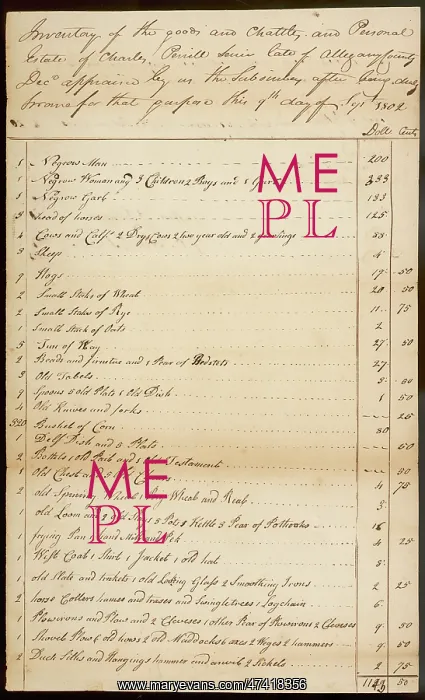 Inventory of the goods and Chattles, and Personal
Estate of Charles Perrill Senir late of Allegany County
Decd appraised by us the Subscribers after being duly
Sworn for that purpose this 9th day of Sept 1802
Doll Cents
1 Negrow Man 200
1 Negrow Woman and 3 Children 2 Boys and 1 333
1 Negrow Garl 133
3 head of horses 125
4 Cows and Calfs 2 Dry Cows 2 two year old and 2 33
3 Sheep 4
9 Hogs 19 50
2 Small Staks of Wheat 20 50
2 Small Staks of Rye 11 75
1 Small Stack of Oats 2
5 Tun of Hay 27 50
2 Beads and furnetue and 1 Pear of Bedstets 27
3 Old Tabels 3
9 Spoons 5 old Plats 1 Old Dish 1 50
4 Old Knives and forks 25
320 Bushel of Corn 80
1 Delf Dish and 8 Plats 50
2 Bottels 1 old and 1 old Testament
1 Old Chest and 80
2 old Spining Wheel 1 Wheat and Reab 4 75
old Loom and 2 old 3 Pots 1 Kettle 3 Pear of Pothooks 16
1 frying Pan 4 25
1 West Coat 1 Shirt 1 Jacket 1 old hat 8
1 old Slate and 1 Old Looking Glass 2 Smoothing Irons 2 25
2 horse Collers hames and trases and Swingletrees 1 Logchain 6
1 Plowirons and Plow and 2 Clevises 1 other Pear of Plowirons 2 Clevises 9 50
1 Shovel Plow 6 old hows 2 old Maddocks 6 axes 2 Wedges 2 hammers 9 50
2 Duch Sithes and Hangings hammer and anvel 2 Sickels 2 75
50
ME
PL
ME
PL
www.maryevans.com/47418356